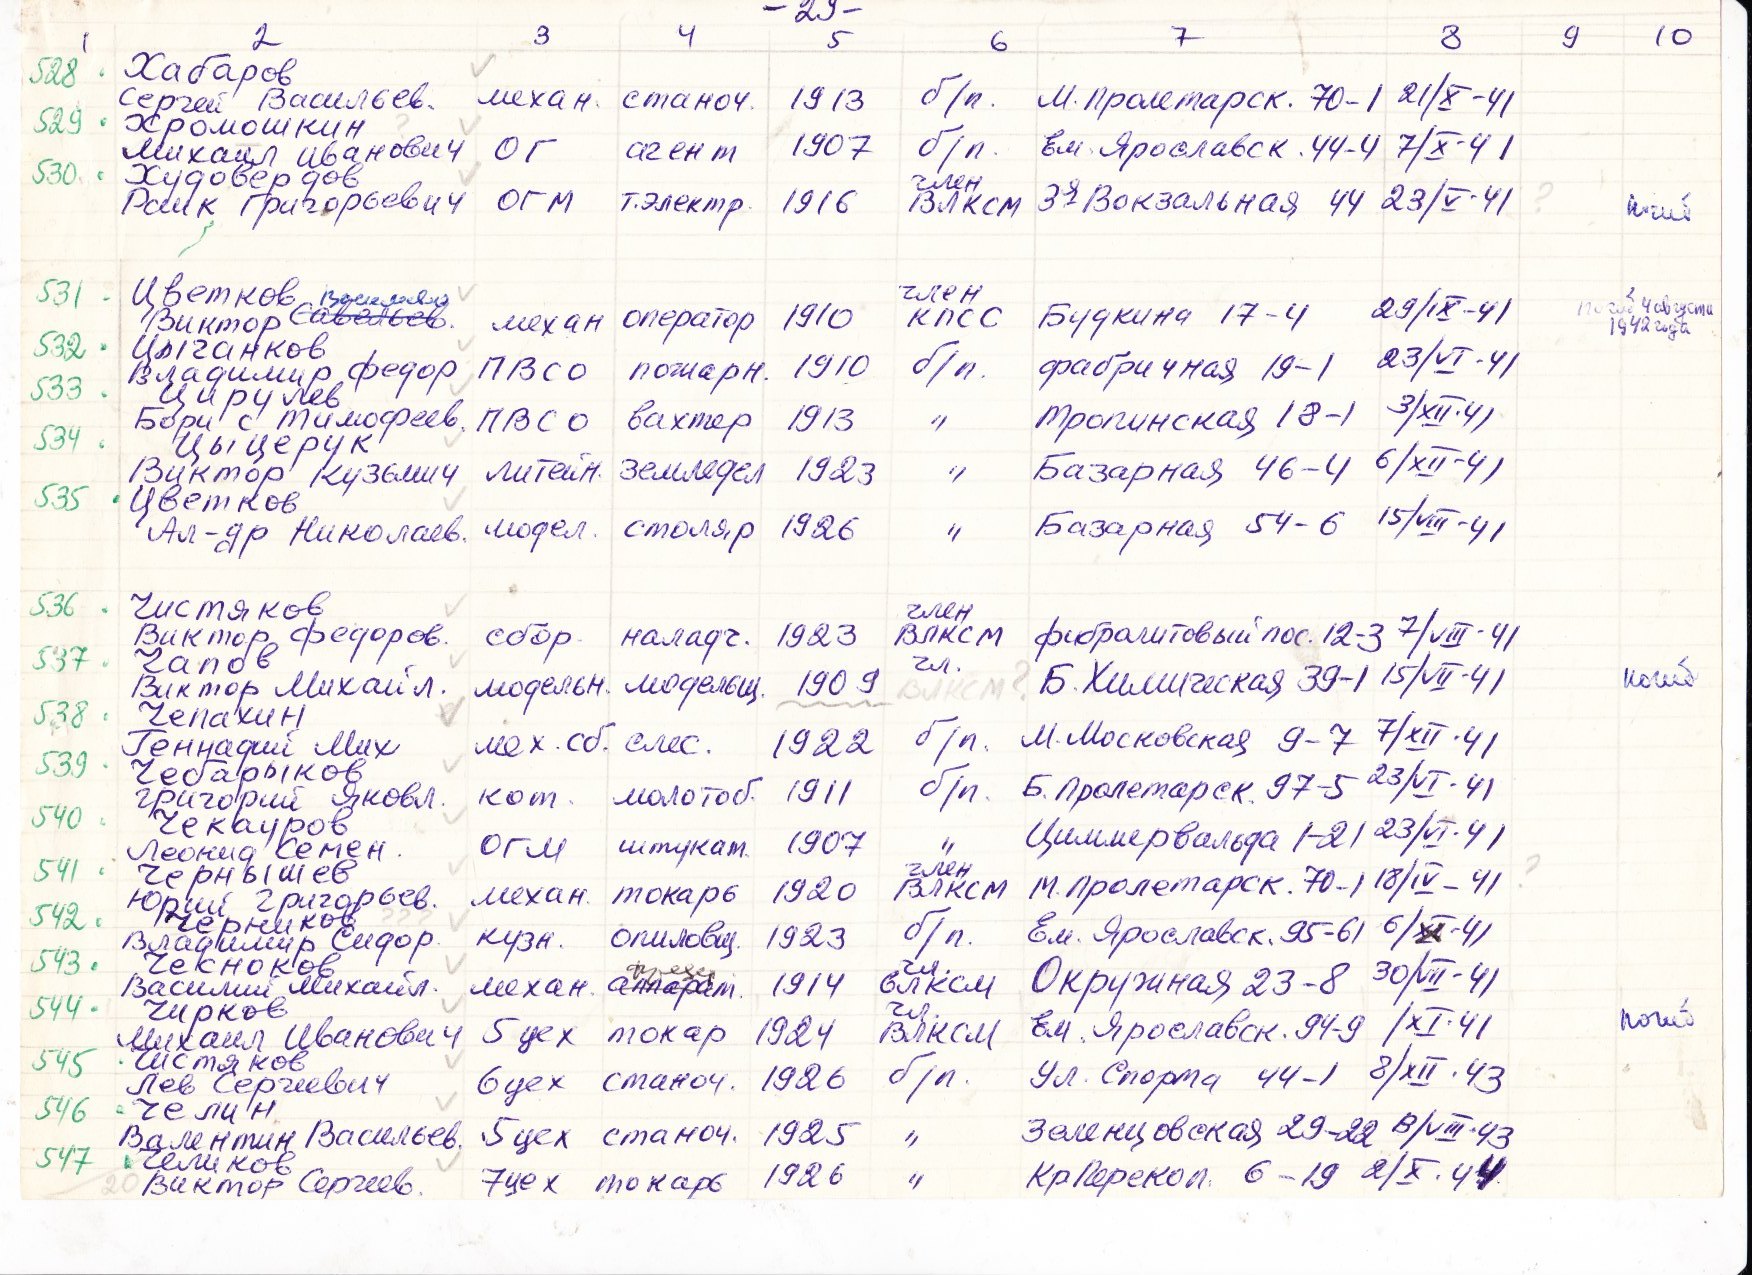 - 29 -
1 2 3 4 5 6 7 8 9 10
528. Хабаров
Сергей Васильев. механ. станоч. 1913 б/п. М. Пролетарск. 70-1 21/X-41
529. Хромошкин ?
Михаил Иванович ОГ агент 1907 б/п. Ем. Ярославск. 44-4 7/X-41
530. Худовердов член
Раик Григорьевич ОГМ т.электр. 1916 ВЛКСМ 3я Вокзальная 44 23/V-41 ? погиб
531 - Цветков член погиб 4 августа
Виктор Савельев. механ оператор 1910 КПСС Будкина 17-4 29/IX-41 1942 года
532. Цыганков
Владимир Федор ПВСО пожарн. 1910 б/п. Фабричная 19-1 23/VI-41
533. Цирулев
Борис Тимофеев. ПВСО вахтер 1913 " Тропинская 18-1 3/XII-41
534. Цыцерук
Виктор Кузьмич литейн. земледел 1923 " Базарная 46-4 6/XII-41
535. Цветков
Ал-др Николаев. модел. столяр 1926 " Базарная 54-6 15/VIII-41
536. Чистяков член
Виктор Федоров. сбор. наладч. 1923 ВЛКСМ фибролитовый пос. 12-3 7/VIII-41
537. Чапов чл.
Виктор Михайл. модельн. модельщ. 1909 ВЛКСМ? Б. Химическая 39-1 15/VII-41 погиб
538. Чепахин
Геннадий Мих мех. сб. слес. 1922 б/п. М. Московская 9-7 7/XII-41
539. Чебарыков
Григорий Яковл. кот. молотоб. 1911 б/п. Б. Пролетарск. 97-5 23/VI-41
540. Чекауров
Леонид Семен. ОГМ штукат. 1907 " Циммервальда 1-21 23/VI-41
541. Чернышев член
Юрий Григорьев. механ. токарь 1920 ВЛКСМ М. Пролетарск. 70-1 18/IV-41 ?
542. Черников ???
Владимир Сидор. кузн. опиловщ. 1923 б/п. Ем. Ярославск. 95-61 6/XI-41
543. Чекноков фрезер чл.
Василий Михайл. механ. аппарат. 1914 ВЛКСМ Окружная 23-8 30/VII-41
544. Чирков чл.
Михаил Иванович 5 цех токар 1924 ВЛКСМ Ем. Ярославск. 94-9 /XI-41 погиб
545. Чистяков
Лев Сергеевич 6 цех станоч. 1926 б/п. Ул. Спорта 44-1 8/XII.43
546. Челин
Валентин Васильев. 5 цех станоч. 1925 " Зеленцовская 29-22 8/VIII-43
547. Челиков
20 Виктор Сергеев. 7 цех токарь 1926 " Кр Перекоп. 6-19 2/X.44